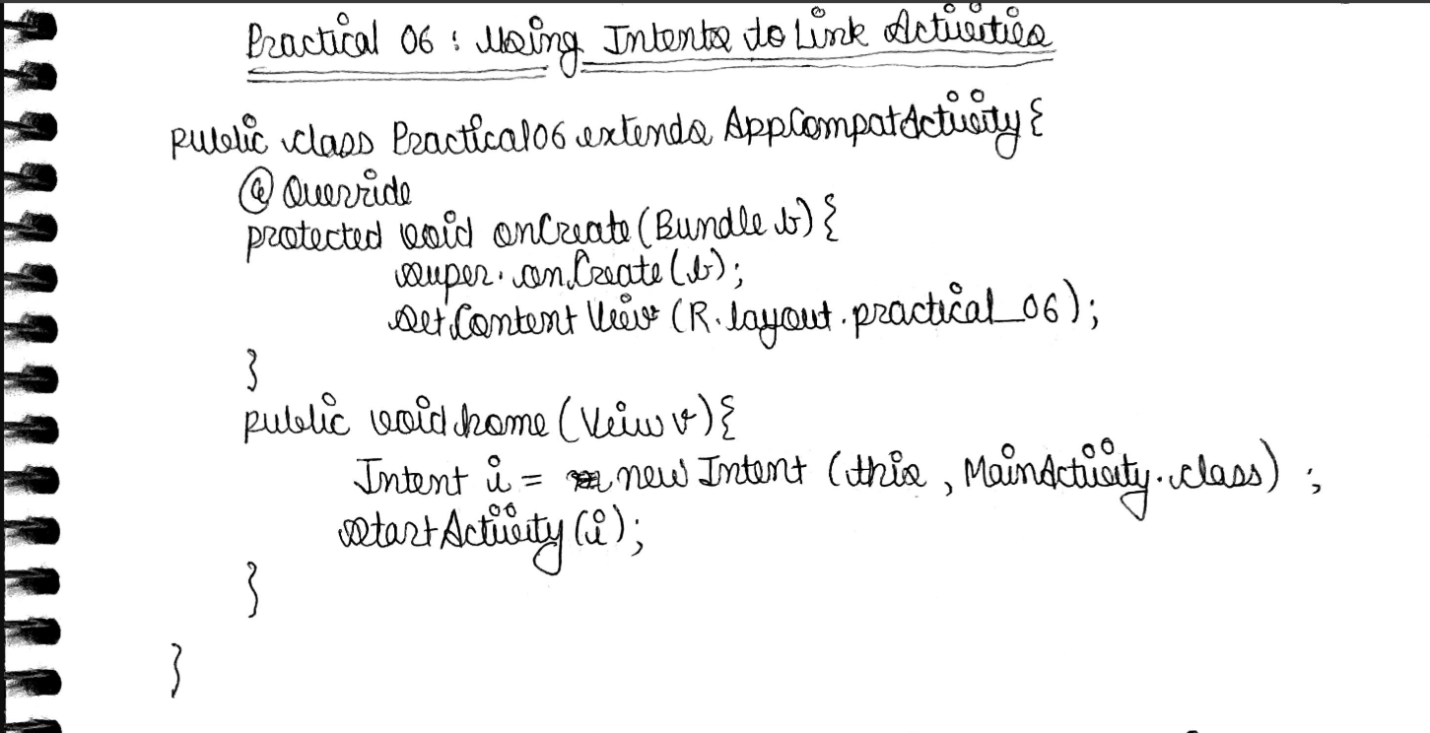 Practical 06 : Using Intents to Link Activities
public class Practical06 extends AppCompatActivity {
@Override
protected void onCreate (Bundle b) {
super.onCreate (b);
setContentView (R.layout.practical_06);
}
public void home (Veiw v) {
Intent i = new Intent (this, MainActivity.class) ;
startActivity (i);
}
}